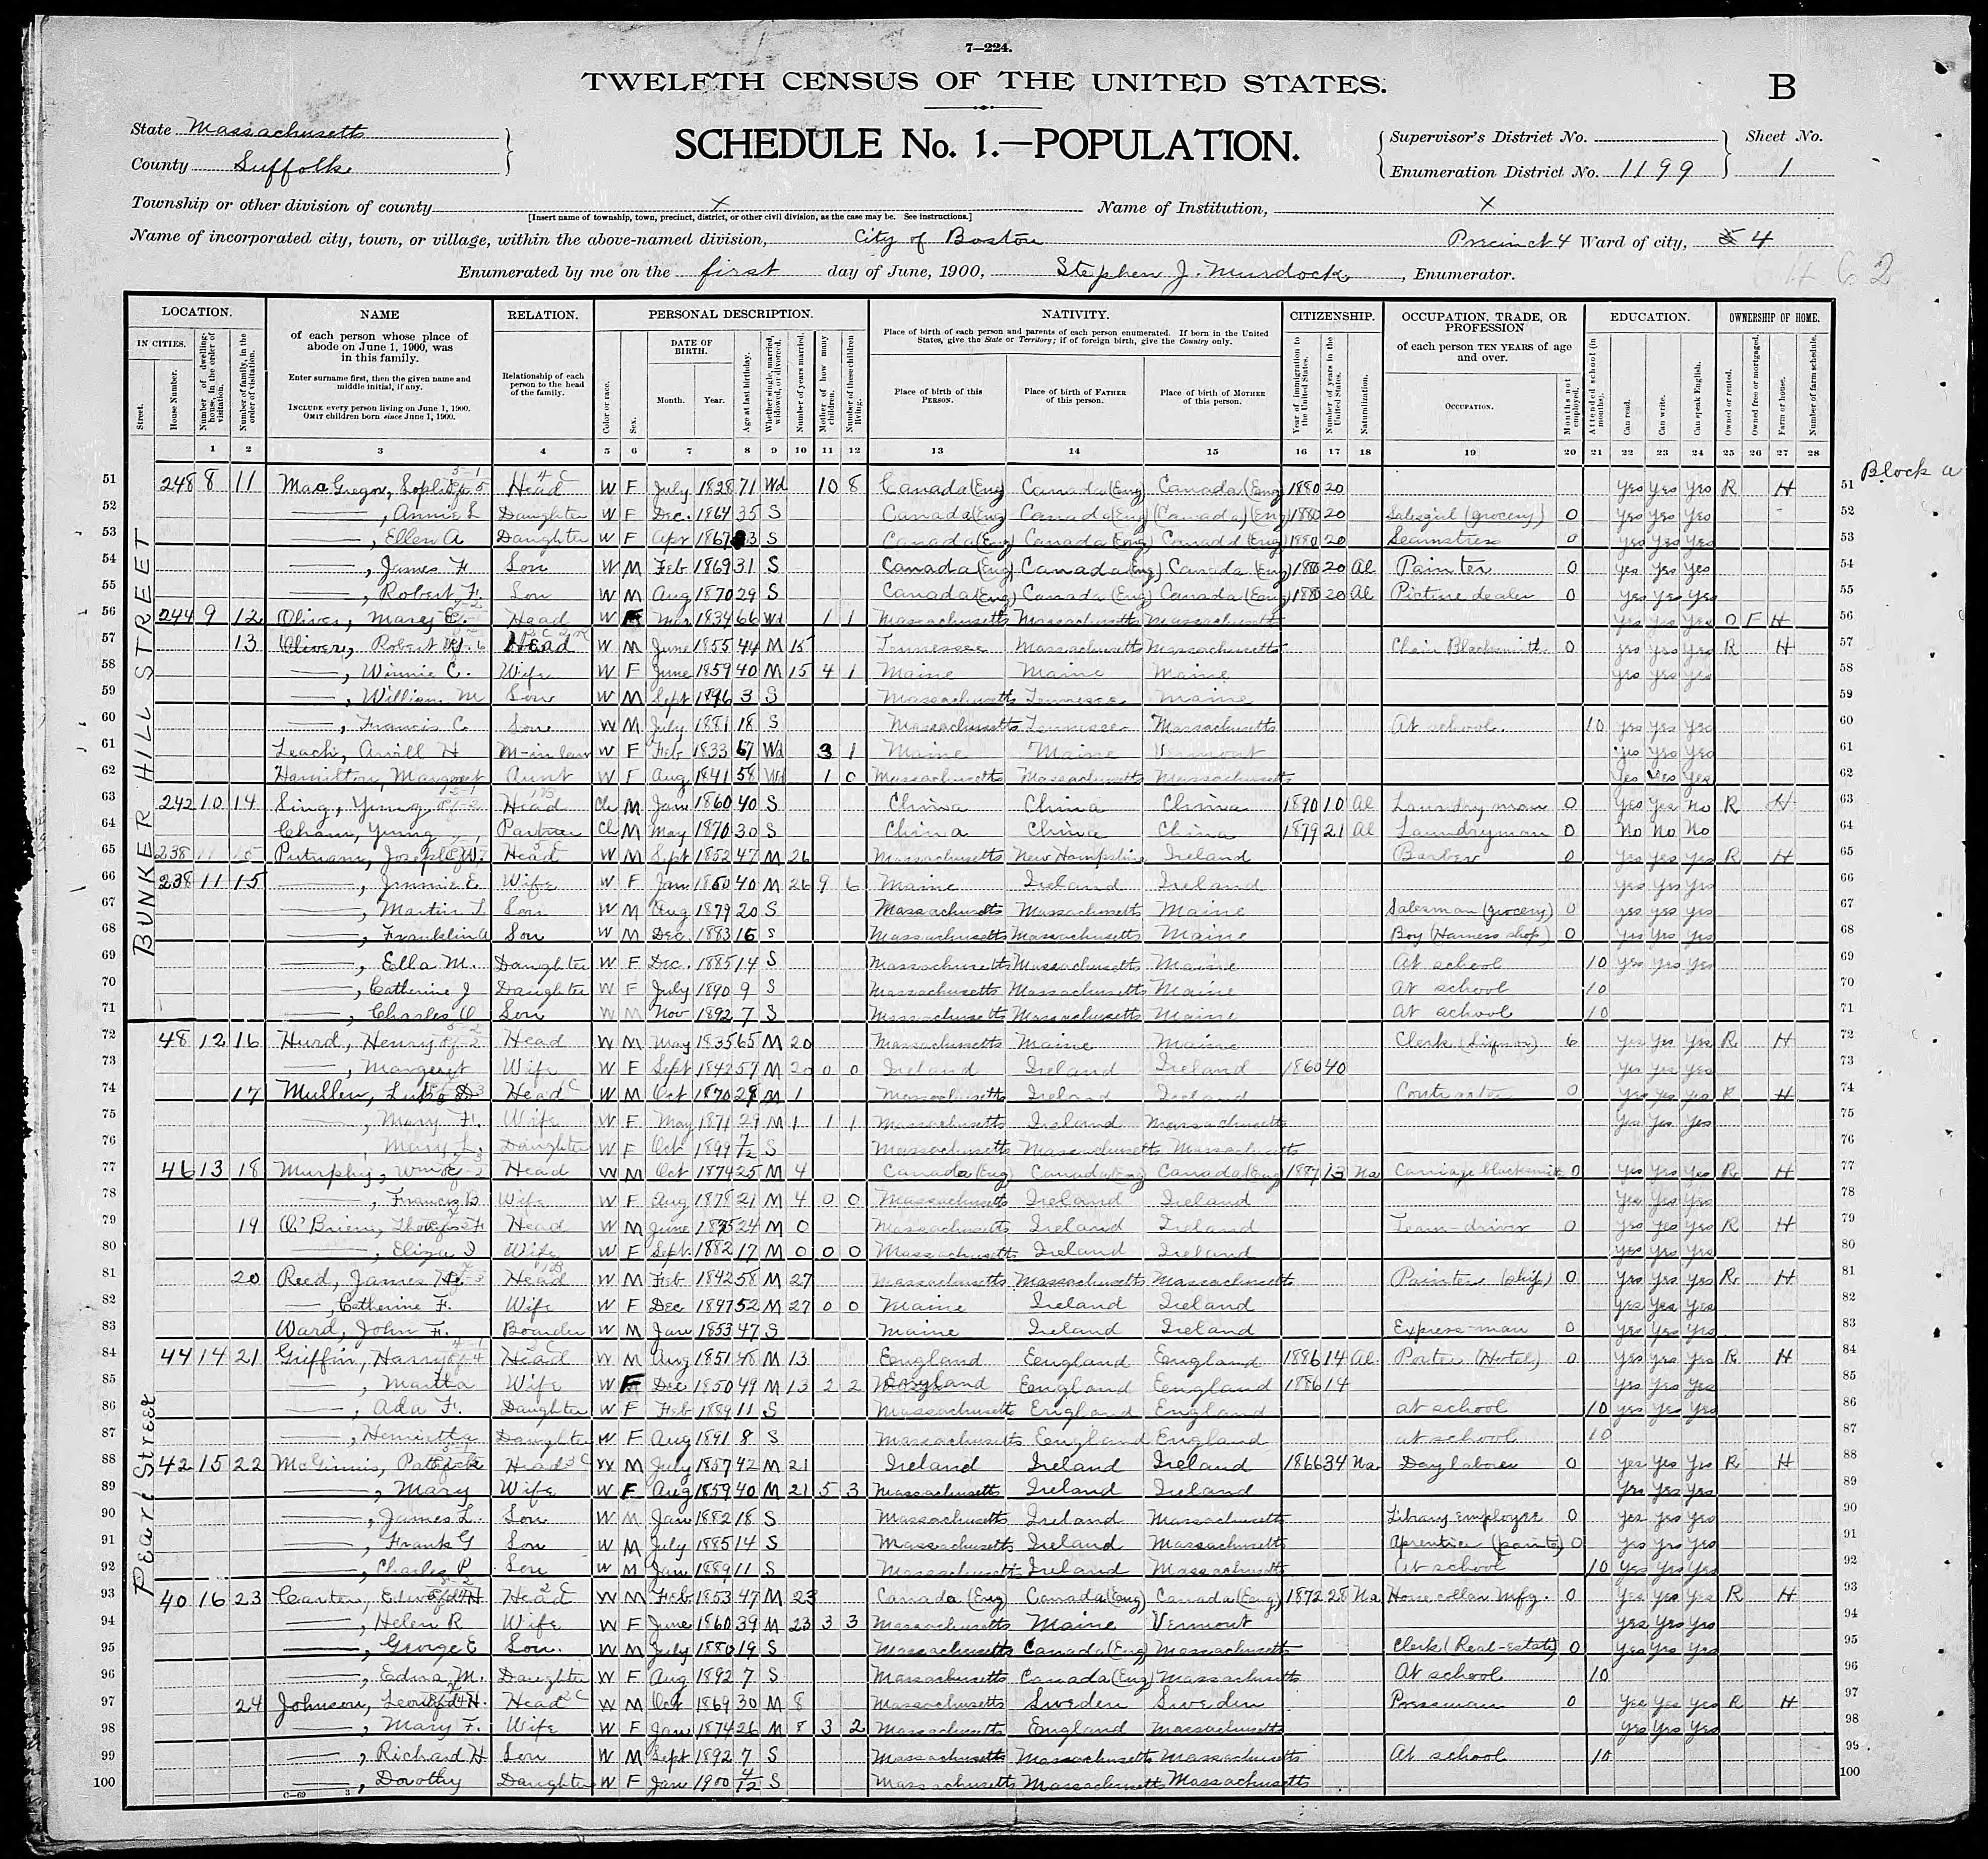 7—224.
TWELFTH CENSUS OF THE UNITED STATES.
B
State Massachusetts
County Suffolk
SCHEDULE No. 1.—POPULATION.
Supervisor's District No.
Enumeration District No. 1199
Sheet No.
1
Township or other division of county X
[Insert name of township, town, precinct, district, or other civil division, as the case may be. See instructions.]
Name of Institution, X
Name of incorporated city, town, or village, within the above-named division, City of Boston Precinct 4 Ward of city, 4
Enumerated by me on the first day of June, 1900, Stephen J. Murdock, Enumerator.
62
LOCATION. NAME RELATION. PERSONAL DESCRIPTION. NATIVITY. CITIZENSHIP. OCCUPATION, TRADE, OR PROFESSION EDUCATION. OWNERSHIP OF HOME.
IN CITIES. Street. House Number. Number of dwelling-house, in the order of visitation. Number of family, in the order of visitation.
of each person whose place of abode on June 1, 1900, was in this family.
Enter surname first, then the given name and middle initial, if any.
INCLUDE every person living on June 1, 1900.
OMIT children born since June 1, 1900.
Relationship of each person to the head of the family.
Color or race. Sex. DATE OF BIRTH. Month. Year. Age at last birthday. Whether single, married, widowed, or divorced. Number of years married. Mother of how many children. Number of these children living.
Place of birth of each person and parents of each person enumerated. If born in the United States, give the State or Territory; if of foreign birth, give the Country only.
Place of birth of this PERSON. Place of birth of FATHER of this person. Place of birth of MOTHER of this person.
Year of immigration to the United States. Number of years in the United States. Naturalization.
of each person TEN YEARS of age and over.
OCCUPATION. Months not employed.
Attended school (in months). Can read. Can write. Can speak English.
Owned or rented. Owned free or mortgaged. Farm or house. Number of farm schedule.
1 2 3 4 5 6 7 8 9 10 11 12 13 14 15 16 17 18 19 20 21 22 23 24 25 26 27 28
BUNKER HILL STREET
Block a
51 248 8 11 MacGregor, Head W F July 1828 71 Wd 10 8 Canada (Eng) Canada (Eng) Canada (Eng) 1880 20 yes yes yes R H 51
52 —, Annie L Daughter W F Dec. 1864 35 S Canada (Eng) Canada (Eng) (Canada) (Eng) 1880 20 Salesgirl (grocery) 0 yes yes yes 52
53 —, Ellen A Daughter W F Apr 1867 33 S Canada (Eng) Canada (Eng) Canada (Eng) 1880 20 Seamstress 0 yes yes yes 53
54 —, James F. Son W M Feb 1869 31 S Canada (Eng) Canada (Eng) Canada (Eng) 1880 20 Al Painter 0 yes yes yes 54
55 —, Robert F. Son W M Aug 1870 29 S Canada (Eng) Canada (Eng) Canada (Eng) 1880 20 Al Picture dealer 0 yes yes yes 55
56 244 9 12 Oliver, Mary E. Head W F Mar 1834 66 Wd 1 1 Massachusetts Massachusetts Massachusetts yes yes yes O F H 56
57 13 Oliver, Robert Head W M June 1855 44 M 15 Tennessee Massachusetts Massachusetts Chain Blacksmith 0 yes yes yes R H 57
58 —, Winnie C. Wife W F June 1859 40 M 15 4 1 Maine Maine Maine yes yes yes 58
59 —, William M Son W M Sept 1896 3 S Massachusetts Tennessee Maine 59
60 —, Francis C. Son W M July 1881 18 S Massachusetts Tennessee Massachusetts At school. 10 yes yes yes 60
61 Leach, H M-in law W F Feb 1833 67 Wd 3 1 Maine Maine Vermont yes yes yes 61
62 Hamilton, Margaret Aunt W F Aug 1841 58 Wd 1 0 Massachusetts Massachusetts Massachusetts yes yes yes 62
63 242 10 14 Sing, Yung Head Ch M Jan 1860 40 S China China China 1890 10 Al Laundryman 0 yes yes No R H 63
64 Cham, Yung Partner Ch M May 1870 30 S China China China 1879 21 Al Laundryman 0 No No No 64
65 238 Putnam, Joseph W. Head W M Sept 1852 47 M 26 Massachusetts New Hampshire Ireland Barber 0 yes yes yes R H 65
66 238 11 15 —, Jennie E. Wife W F Jan 1860 40 M 26 9 6 Maine Ireland Ireland yes yes yes 66
67 —, Martin T. Son W M Aug 1879 20 S Massachusetts Massachusetts Maine Salesman (grocery) 0 yes yes yes 67
68 —, Franklin A Son W M Dec 1883 16 S Massachusetts Massachusetts Maine Boy (Harness shop) 0 yes yes yes 68
69 —, Ella M. Daughter W F Dec. 1885 14 S Massachusetts Massachusetts Maine At school 10 yes yes yes 69
70 —, Catherine J Daughter W F July 1890 9 S Massachusetts Massachusetts Maine At school 10 70
71 —, Charles O Son W M Nov 1892 7 S Massachusetts Massachusetts Maine At school 10 71
Pearl Street
72 48 12 16 Hurd, Henry Head W M May 1835 65 M 20 Massachusetts Maine Maine Clerk (Liquor) 6 yes yes yes R H 72
73 —, Margaret Wife W F Sept 1842 57 M 20 0 0 Ireland Ireland Ireland 1860 40 yes yes yes 73
74 17 Mullen, Luke Head W M Oct 1870 29 M 1 Massachusetts Ireland Ireland Contractor 0 yes yes yes R H 74
75 —, Mary F. Wife W F May 1871 29 M 1 1 1 Massachusetts Ireland Massachusetts yes yes yes 75
76 Mary L. Daughter W F Oct 1899 7/12 S Massachusetts Massachusetts Massachusetts 76
77 46 13 18 Murphy, Wm Head W M Oct 1874 25 M 4 Canada (Eng) Canada (Eng) Canada (Eng) 1887 13 Na Carriage blacksmith 0 yes yes yes R H 77
78 —, Frances B. Wife W F Aug 1878 21 M 4 0 0 Massachusetts Ireland Ireland yes yes yes 78
79 19 O'Brien, Head W M June 1875 24 M 0 Massachusetts Ireland Ireland Team-driver 0 yes yes yes R H 79
80 —, Eliza J Wife W F Sept. 1882 17 M 0 0 0 Massachusetts Ireland Ireland yes yes yes 80
81 20 Reed, James Head W M Feb 1842 58 M 27 Massachusetts Massachusetts Massachusetts Painter (ship) 0 yes yes yes R H 81
82 —, Catherine F. Wife W F Dec 1847 52 M 27 0 0 Maine Ireland Ireland yes yes yes 82
83 Ward, John F. Boarder W M Jan 1853 47 S Maine Ireland Ireland Express-man 0 yes yes yes 83
84 44 14 21 Griffin, Harry Head W M Aug 1851 48 M 13 England England England 1886 14 Al. Porter (Hotel) 0 yes yes yes R H 84
85 —, Martha Wife W F Dec 1850 49 M 13 2 2 England England England 1886 14 yes yes yes 85
86 —, Ada F. Daughter W F Feb 1889 11 S Massachusetts England England at school 10 yes yes yes 86
87 —, Henrietta Daughter W F Aug 1891 8 S Massachusetts England England at school 10 87
88 42 15 22 McGinnis, Patrick Head W M July 1857 42 M 21 Ireland Ireland Ireland 1866 34 Na Day laborer 0 yes yes yes R H 88
89 —, Mary Wife W F Aug 1859 40 M 21 5 3 Massachusetts Ireland Ireland yes yes yes 89
90 —, James L. Son W M Jan 1882 18 S Massachusetts Ireland Massachusetts Library employee 0 yes yes yes 90
91 —, Frank G Son W M July 1885 14 S Massachusetts Ireland Massachusetts Aprentice (painter) 0 yes yes yes 91
92 —, Charles P. Son W M Jan 1889 11 S Massachusetts Ireland Massachusetts At school 10 yes yes yes 92
93 40 16 23 Carter, Edward H Head W M Feb 1853 47 M 23 Canada (Eng) Canada (Eng) Canada (Eng) 1872 28 Na Horse collar Mfg. 0 yes yes yes R H 93
94 —, Helen R Wife W F June 1860 39 M 23 3 3 Massachusetts Maine Vermont yes yes yes 94
95 —, George E Son. W M July 1880 19 S Massachusetts Canada (Eng) Massachusetts Clerk (Real-Estate) 0 yes yes yes 95
96 —, Edna M. Daughter W F Aug 1892 7 S Massachusetts Canada (Eng) Massachusetts At school 10 96
97 24 Johnson, H. Head W M Oct 1869 30 M 8 Massachusetts Sweden Sweden Pressman 0 yes yes yes R H 97
98 —, Mary F. Wife W F Jan 1874 26 M 8 3 2 Massachusetts England Massachusetts yes yes yes 98
99 —, Richard H Son W M Sept 1892 7 S Massachusetts Massachusetts Massachusetts At school 10 99
100 —, Dorothy Daughter W F Jan 1900 4/12 S Massachusetts Massachusetts Massachusetts 100
C—69 3